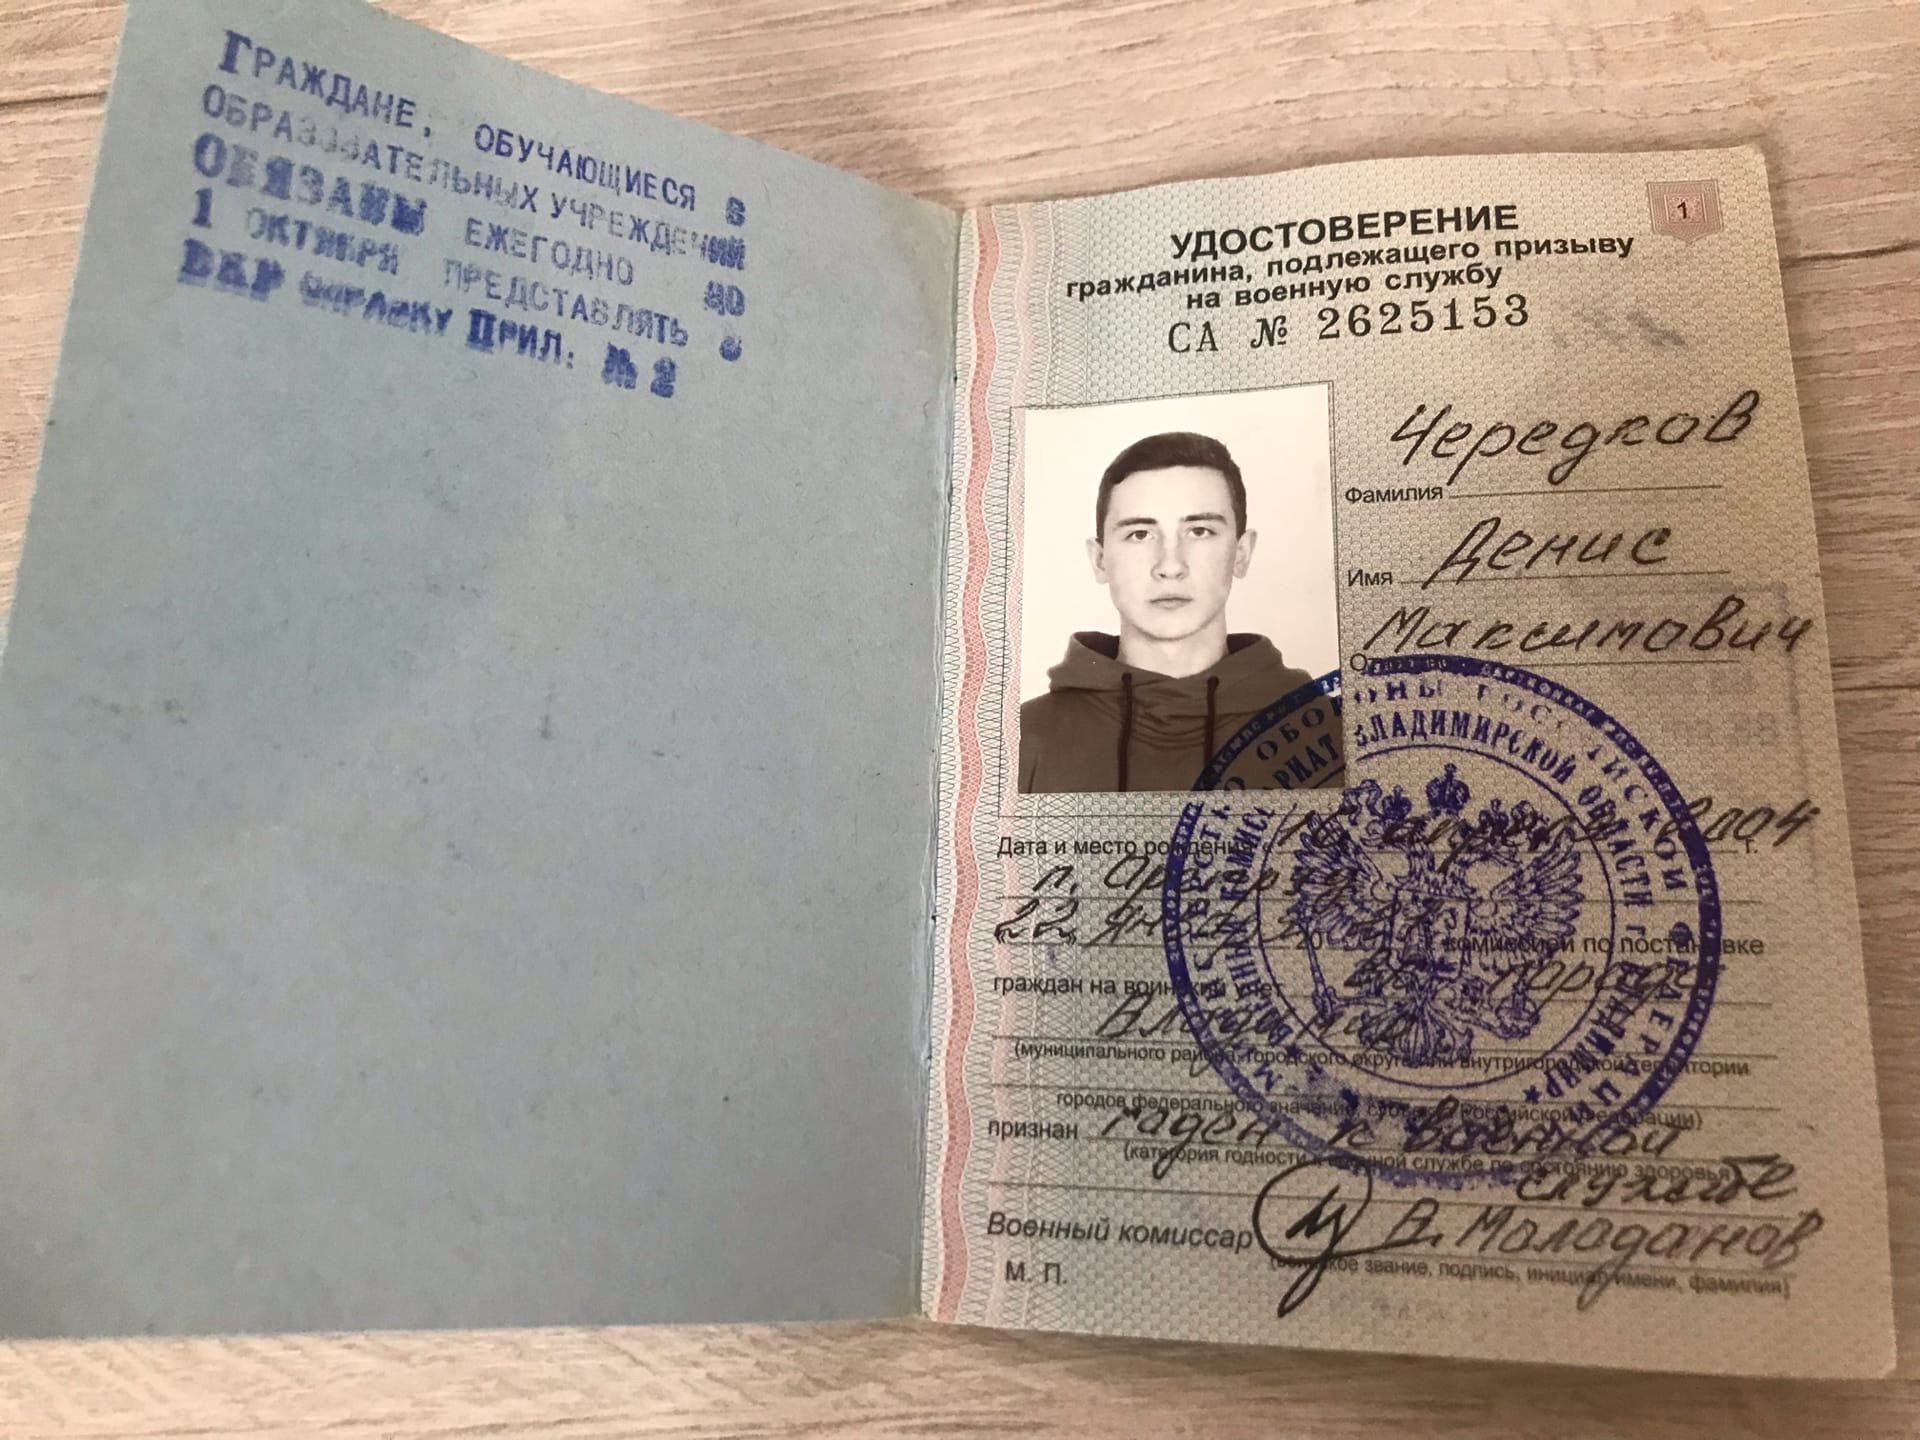 Граждане, обучающиеся в
образовательных учреждений
обязаны ежегодно до
1 октября представлять в
ВКР справку Прил: № 2
1
УДОСТОВЕРЕНИЕ
гражданина, подлежащего призыву
на военную службу
СА № 2625153
Чередков
Фамилия
Денис
Имя
Максимович
Дата и место рождения « 16 апреля 2004 г.
«22» Января 20 комиссией по постановке
граждан на воинский учет города
Владимир
(муниципального района, городского округа или внутригородской территории
городов федерального значения, субъекта Российской Федерации)
признан годен к военной
(категория годности к военной службе по состоянию здоровья)
службе
Военный комиссар В. Молоданов
(воинское звание, подпись, инициал имени, фамилия)
М. П.
ВЛАДИМИРСКОЙ ОБЛАСТИ